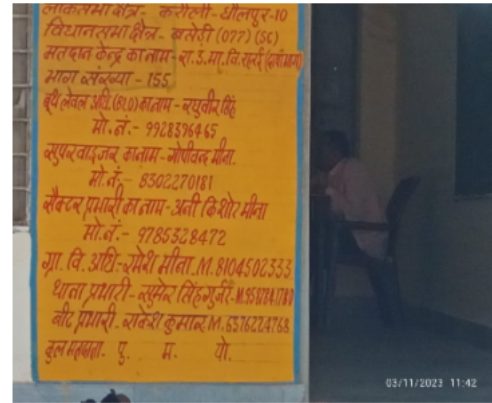 लोकसभा क्षेत्र- करौली-धौलपुर-10
विधानसभा क्षेत्र- बसेडी (077) (SC)
मतदान केन्द्र का नाम- रा.उ.मा.वि.
भाग संख्या - 155
बूथ लेवल अधि. (BLO) का नाम - रघुवीर सिंह
मो. नं.- 9928396465
सुपरवाइजर का नाम- गोपीचन्द मीना.
मो. नं.- 8302270181
सैक्टर प्रभारी का नाम- अनी किशोर मीना
मो. नं.- 9785328472
ग्रा. वि. अधि- रमेश मीना. M. 8104502333
थाना प्रभारी - सुमेर सिंह गुर्जर- M.
बीट प्रभारी- राकेश कुमार M. 6376224768
कुल मतदाता- पु. म. यो.
03/11/2023 11:42